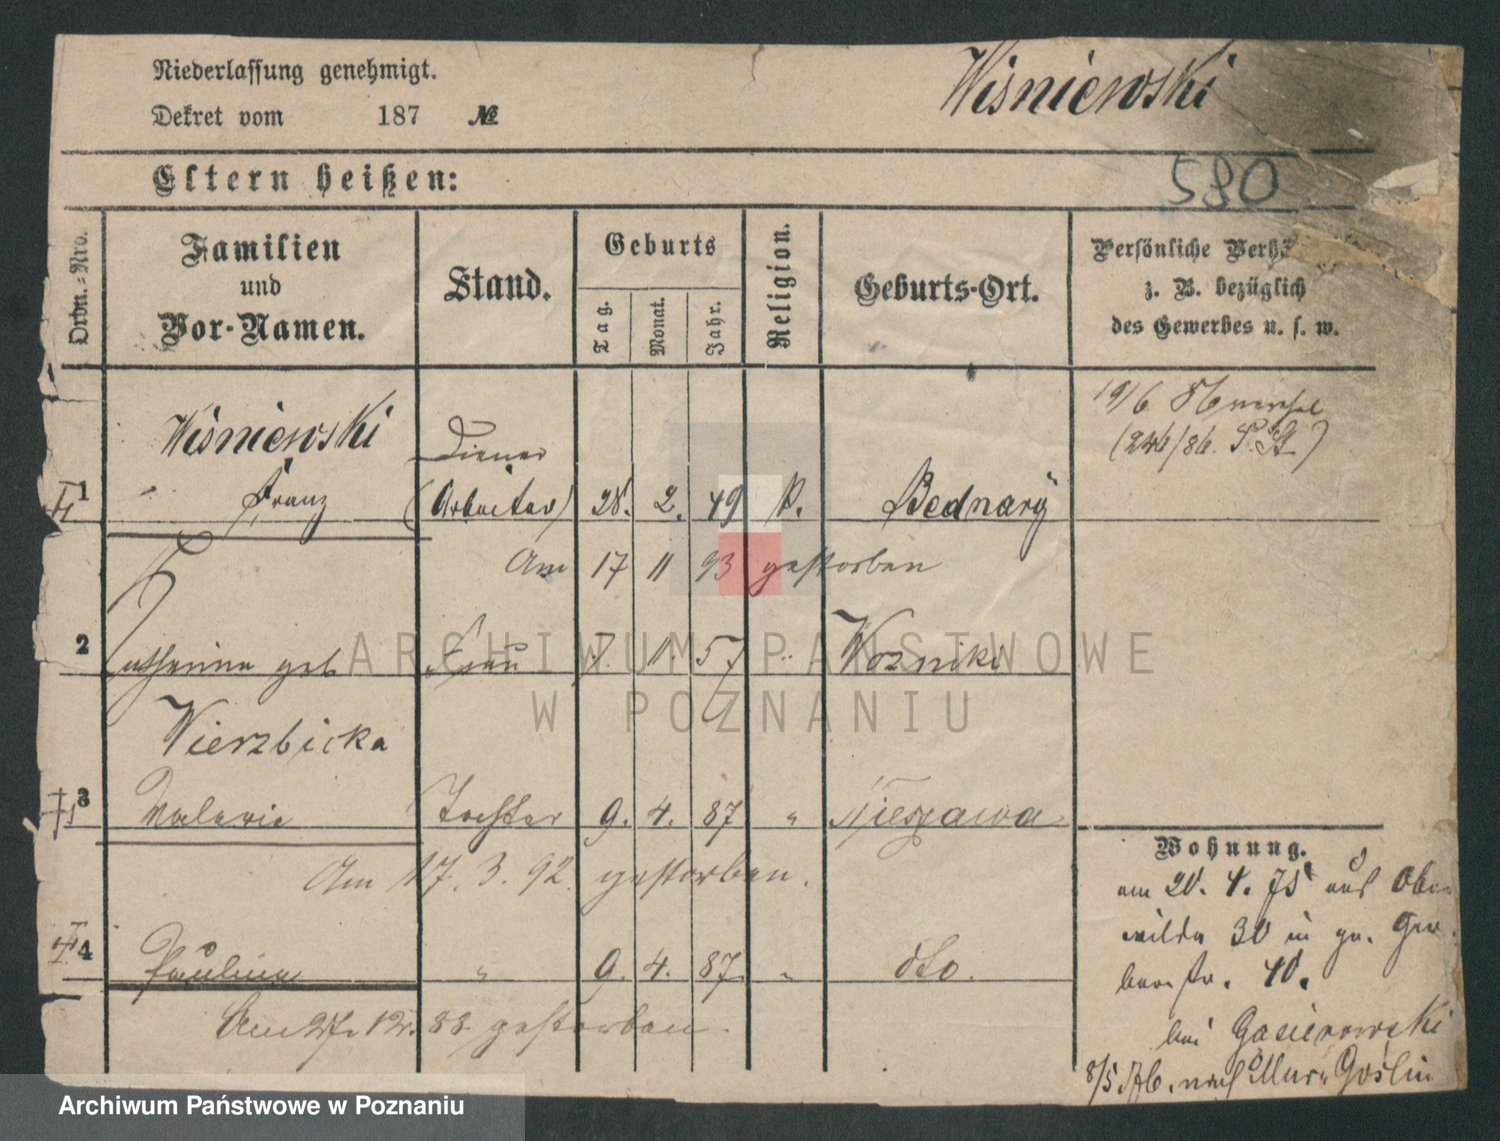 Niederlassung genehmigt.
Dekret vom 187 №
Wiśniewski
Eltern heißen:
580
Ordn.-Nro.
Familien und Vor-Namen.
Stand.
Geburts
Tag.
Monat.
Jahr.
Religion.
Geburts-Ort.
Persönliche Verhä
z. B. bezüglich
des Gewerbes u. s. w.
19/6
(246/86. P. A.)
Wiśniewski
Diener
1 Franz (Arbeiter) 28. 2. 49 k. Bednary
Am 17 11 93 gestorben
2 Catharina geb Frau 7. 11. 57 " Wozniki
Wierzbicka
3 Valerie Tochter 9. 4. 87 " Nieszawa
Am 17. 3. 92. gestorben.
4 Paulina " 9. 4. 87. " dto.
Am 27. 12. 88. gestorben.
Wohnung.
am 20. 4. 75 aus Ober
wilda 30 in gr. Ger
berstr. 40.
bei Gasierowski
8/5 Ab. nach Mur. Goślin
ARCHIWUM PAŃSTWOWE
W POZNANIU
Archiwum Państwowe w Poznaniu